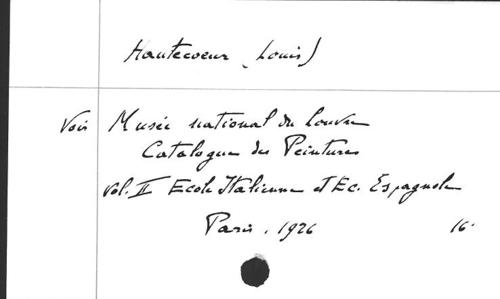 Hautecoeur (Louis)
Voir Musée national du Louvre
Catalogue des Peintures
Vol. II Ecole Italienne et Ec. Espagnole
Paris. 1926 16°